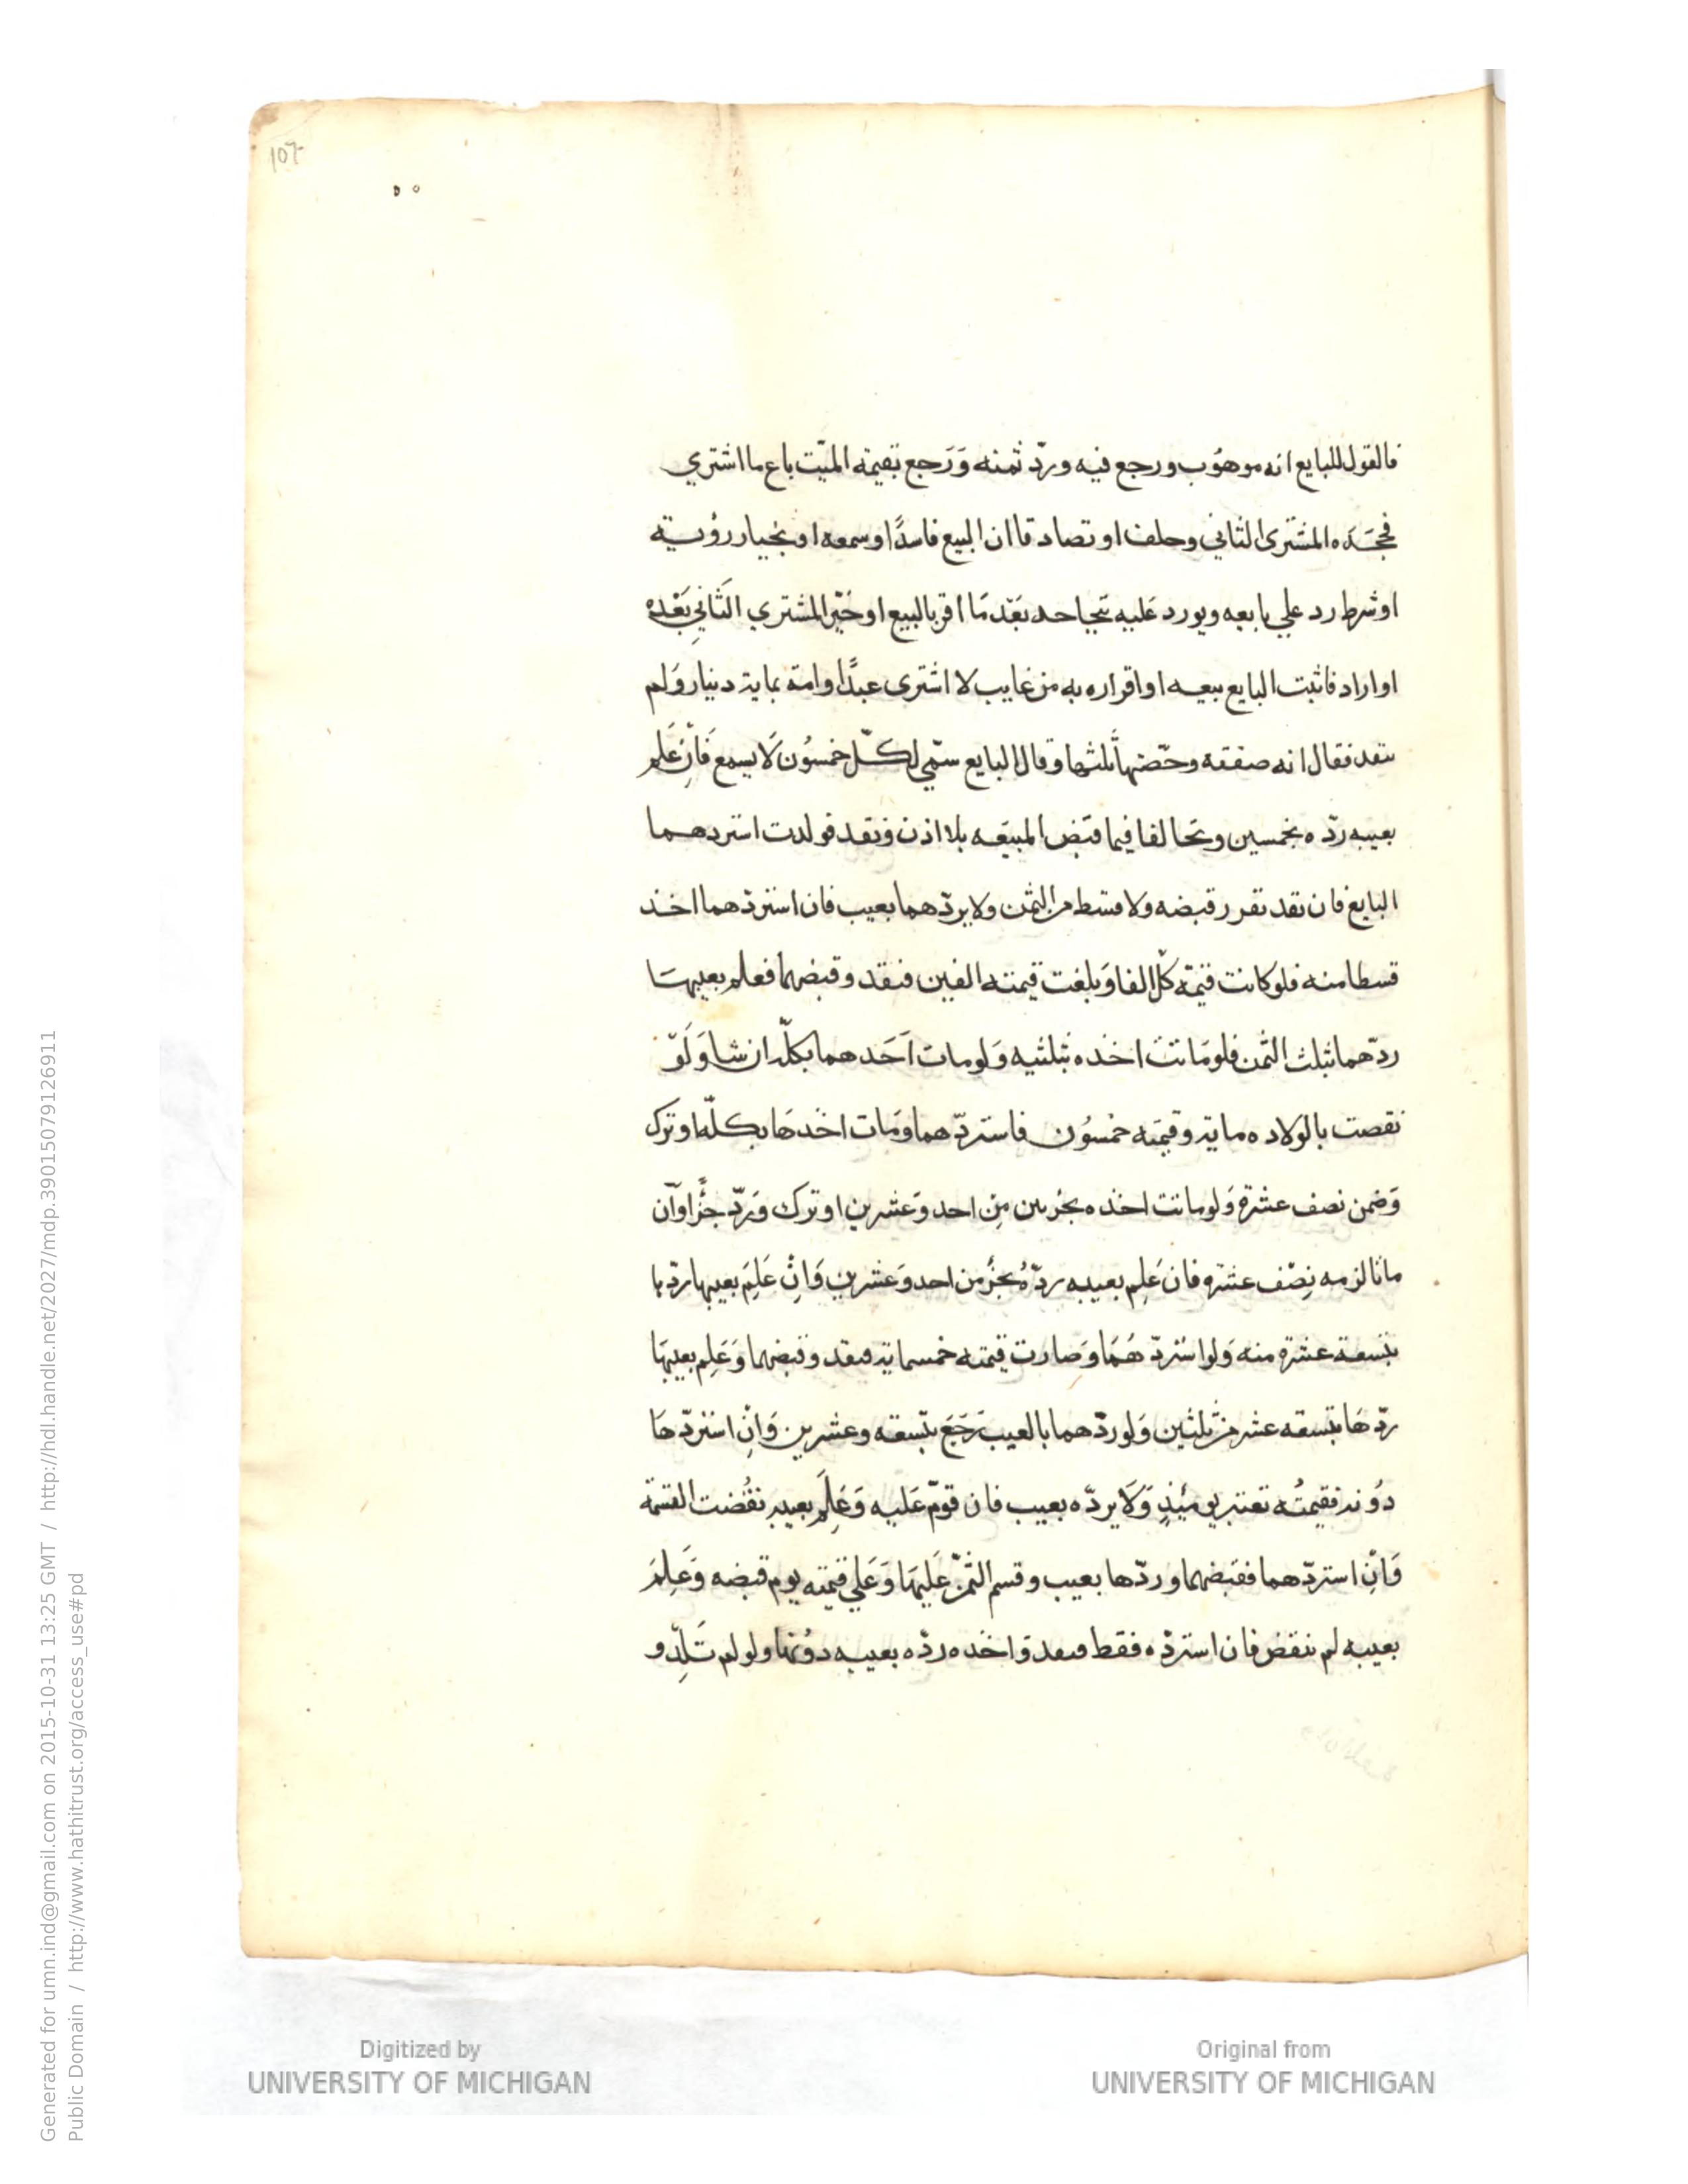 107
فالقول للبايع انه موهوب ورجع فيه وردّ ثمنه وَرَجع بقيمة الميّت باع ما اشتري
فجحَدَه المشترى الثاني وحلف او تصادقا ان البيع فاسدًا او سمعه او بخيار رؤية
او شرط رد علي بايعه ويورد عَليه بتجاحد بَعْد مَا اقر بالبيع او خَيّر المشتري الثَاني بَعْده
او اراد فاثبت البايع بيعه او اقراره به من غايب لا اشترى عبدًا وامة بماية دينار وَلم
ينقد فقال انه صفقه وحصّتها ثلثها وقال البايع سمّي لكلّ خمسُون لَا يسمع فَاِنْ عَلم
بعيبه ردّه بخمسين وتحالفا فيما قبض المبيَعه بلا اذن ونقد فولدت استردهما
البايع فان نقد تقرر قبضه ولا قسط من الثمن ولا يردّهما بعيب فان استردّهما اخذ
قسطا منه فلو كانت قيمَة كلّ الفا وَبلغت قيمته الفين فنقد وقبضهما فعلم بعيبهَا
ردّهما بثلث الثّمن فلو مَاتت اخذه بثلثيه وَلو مات اَحَدهما بكلّه ان شا وَلَوْ
نقصت بالولاده ماية وقيمَته خمسُون فاستردّهما وَمَات اخَذهَا بكلّه او ترك
وَضمن نصف عشرة وَلو ماتت اخذه بجزءين مِن احد وَعشرين او ترك وَردّ جزًا وَان
ماتا لزمه نِصْف عشره فان عَلِم بعيبه ردّهُ بجزء من احد وَعشرين وَاِنْ عَلِمَ بعيبها ردّها
بتسعة عشرة منه وَلو استردّ هُمَا وَصارت قيمته خمسماية فنقد وقبضهما وَعَلِم بعيبهَا
ردّهَا بتسعه عشر من ثلثين وَلو ردّهما بالعيب رَجَعَ بتسعه وعشرين وَاِنِ استردّهَا
دُونه فقيمتُه تعتبر يومَئِذٍ وَلَا يردّه بعيب فان قوّم عَليه وَعَلِمَ بعيبه نقُضت القسمَة
وَاِنِ استردّهما فقبضهما وردّها بعيب وقسم الثّمنْ عَليهَا وَعَلي قيمته يوم قبضه وَعَلِمَ
بعيبه لم ينقض فان استردّه فقط فنقد وَاخذه ردّه بعيبه دوُنهَا ولو لم تَلِدْ و
Generated for umn.ind@gmail.com on 2015-10-31 13:25 GMT / http://hdl.handle.net/2027/mdp.39015079126911
Public Domain / http://www.hathitrust.org/access_use#pd
Digitized by
UNIVERSITY OF MICHIGAN
Original from
UNIVERSITY OF MICHIGAN